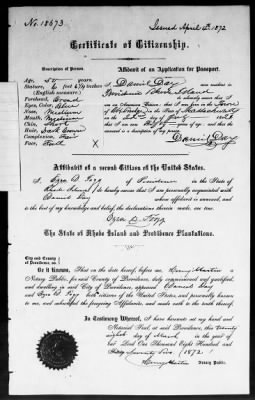 No. 18673
Issued April 6th, 1872
Certificate of Citizenship.
Description of Person.
Affidavit of an Application for Passport.
Age, 50 years.
Stature, 6 feet inches
(English measure.)
Forehead, Broad
Eyes, Blue
Nose, Medium
Mouth, Medium
Chin, Short
Hair, Dark Brown
Complexion, Fair
Face, Full
I, Daniel Day
Providence Rhode Island
do hereby swear that I am
born in the Town
Massachusetts
on the
description of my person
Daniel Day
Affidavit of a second Citizen of the United States.
I, Ezra D. Fogg of Providence in the State of
Rhode Island do hereby swear that I am personally acquainted with
Daniel Day whose affidavit is annexed, and
to the best of my knowledge and belief, the declarations therein made are true.
Ezra D. Fogg
The State of Rhode Island and Providence Plantations.
City and County
of Providence, ss.
Be it Known, That on the date hereof, before me, Henry Martin a
Notary Public, for said County of Providence, duly commissioned and qualified,
and dwelling in said City of Providence, appeared Daniel Day
and Ezra D. Fogg both citizens of the United States, and personally known
to me, and subscribed the foregoing Affidavits, and made oath to the truth thereof.
In Testimony Whereof, I have hereunto set my hand and
Notarial Seal, at said Providence, this twenty
eighth day of March in the year of
our Lord One Thousand Eight Hundred and
Seventy Two (1872)
Henry Martin
Notary Public.